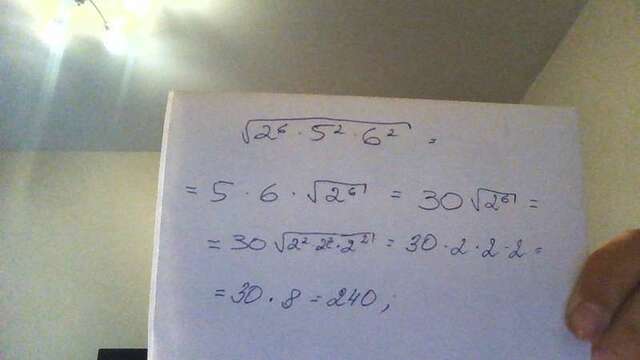 √2⁶ · 5² · 6² =
= 5 · 6 · √2⁶ = 30 √2⁶ =
= 30 √2² · 2² · 2² = 30 · 2 · 2 · 2 =
= 30 · 8 = 240;